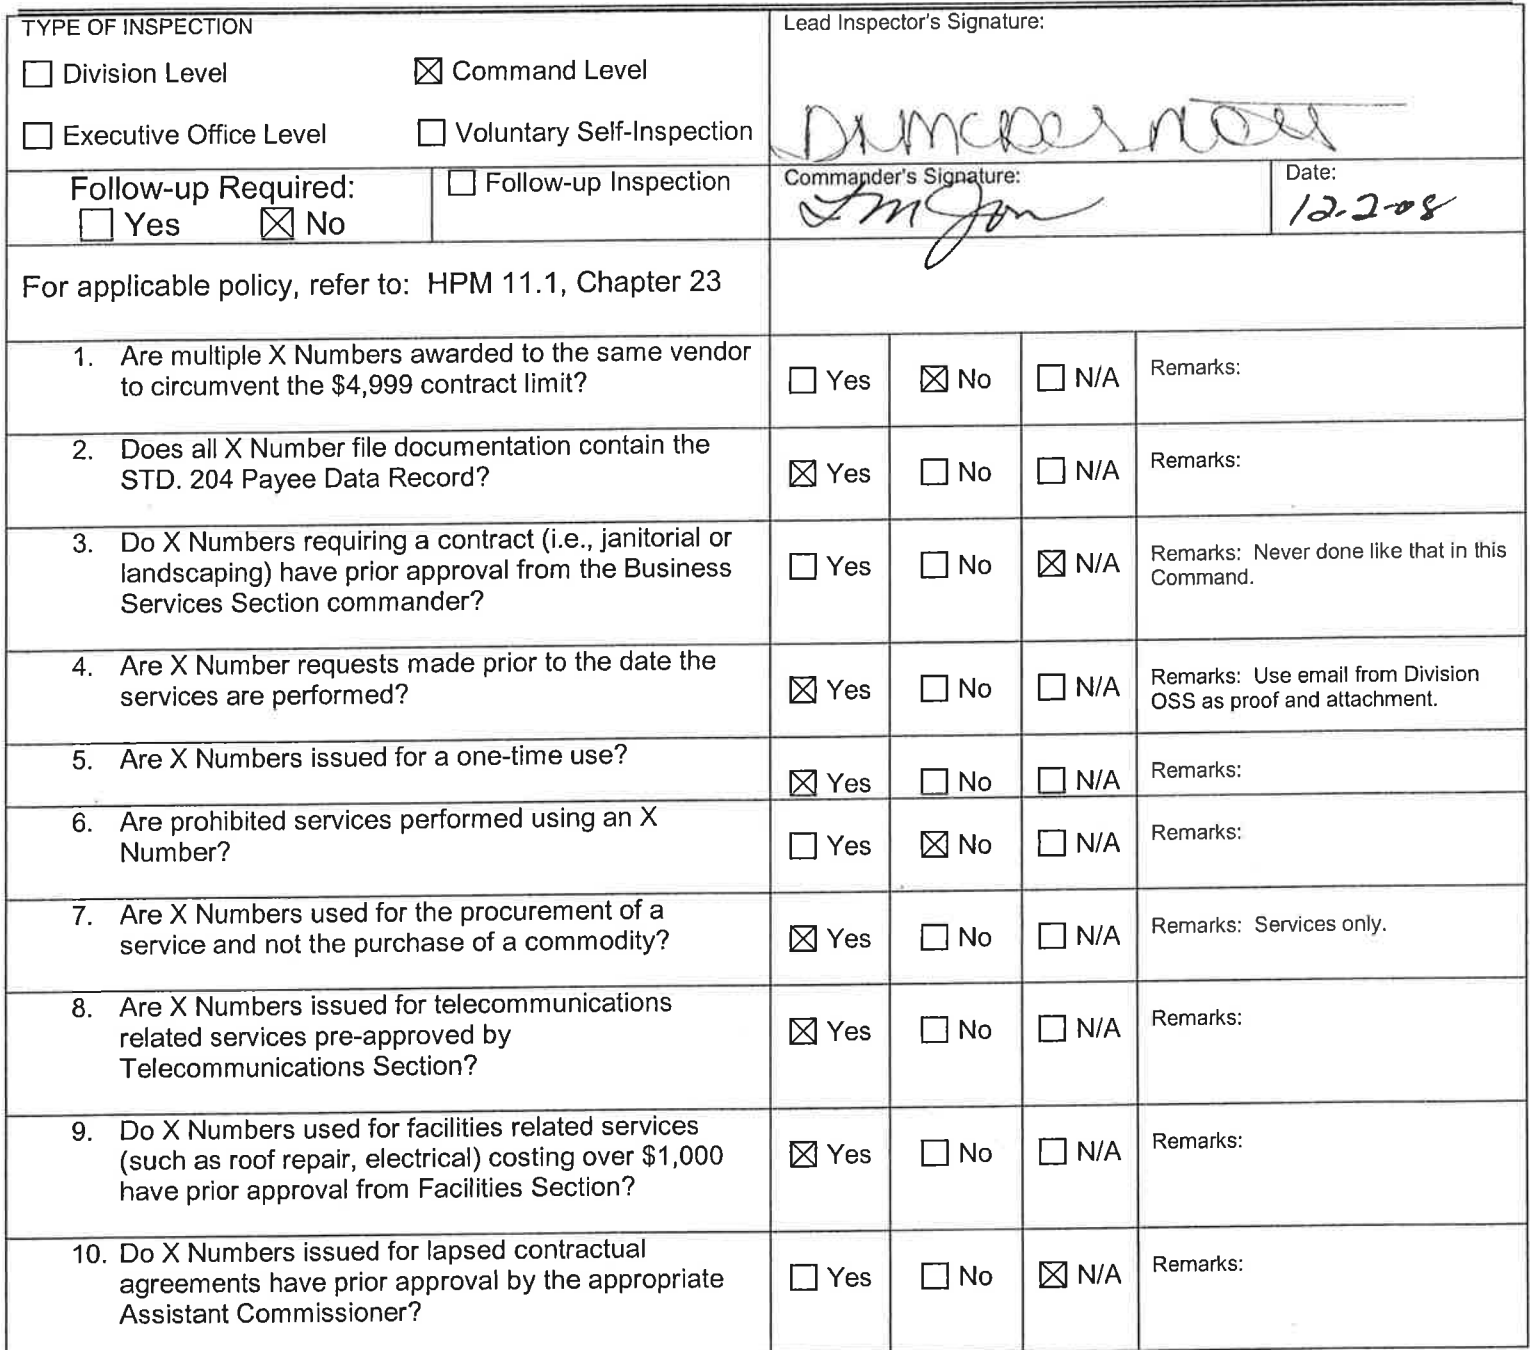 TYPE OF INSPECTION
Division Level
Command Level
Executive Office Level
Voluntary Self-Inspection
Lead Inspector's Signature:
Follow-up Required:
Yes
No
Follow-up Inspection
Commander's Signature:
Date:
12-2-08
For applicable policy, refer to: HPM 11.1, Chapter 23
1. Are multiple X Numbers awarded to the same vendor
to circumvent the $4,999 contract limit?
Yes
No
N/A
Remarks:
2. Does all X Number file documentation contain the
STD. 204 Payee Data Record?
Yes
No
N/A
Remarks:
3. Do X Numbers requiring a contract (i.e., janitorial or
landscaping) have prior approval from the Business
Services Section commander?
Yes
No
N/A
Remarks: Never done like that in this
Command.
4. Are X Number requests made prior to the date the
services are performed?
Yes
No
N/A
Remarks: Use email from Division
OSS as proof and attachment.
5. Are X Numbers issued for a one-time use?
Yes
No
N/A
Remarks:
6. Are prohibited services performed using an X
Number?
Yes
No
N/A
Remarks:
7. Are X Numbers used for the procurement of a
service and not the purchase of a commodity?
Yes
No
N/A
Remarks: Services only.
8. Are X Numbers issued for telecommunications
related services pre-approved by
Telecommunications Section?
Yes
No
N/A
Remarks:
9. Do X Numbers used for facilities related services
(such as roof repair, electrical) costing over $1,000
have prior approval from Facilities Section?
Yes
No
N/A
Remarks:
10. Do X Numbers issued for lapsed contractual
agreements have prior approval by the appropriate
Assistant Commissioner?
Yes
No
N/A
Remarks: